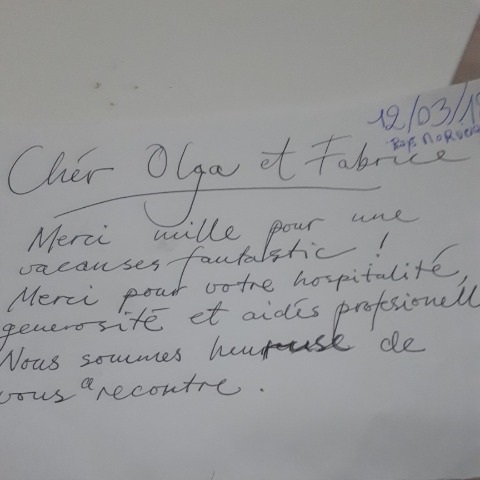 12/03/19
Chér Olga et Fabrice
Merci mille pour une
vacanses fantastic !
Merci pour votre hospitalité,
generosité et aidés profesionell
Nous sommes heureuse de
vous a recontre.